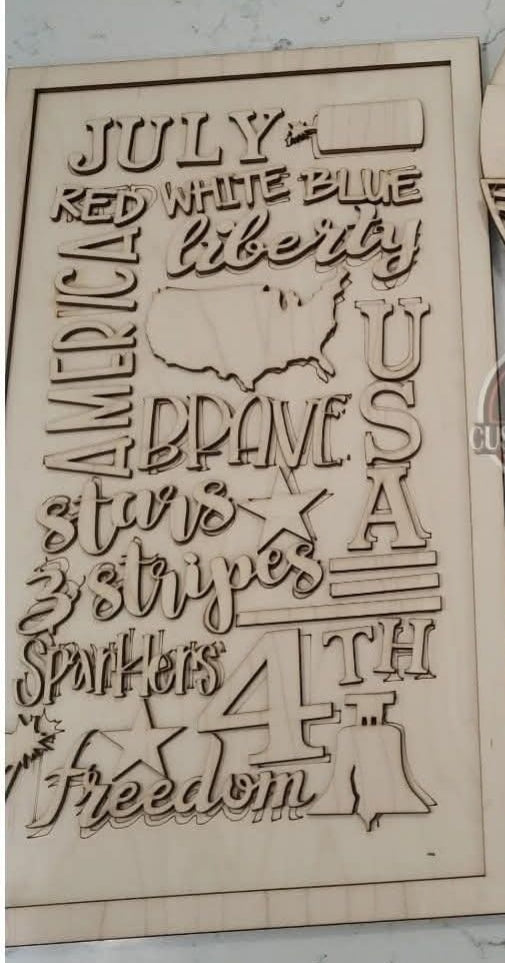 JULY
RED WHITE BLUE
liberty
AMERICA
USA
BRAVE
stars
& stripes
Sparklers
4TH
freedom
CUS